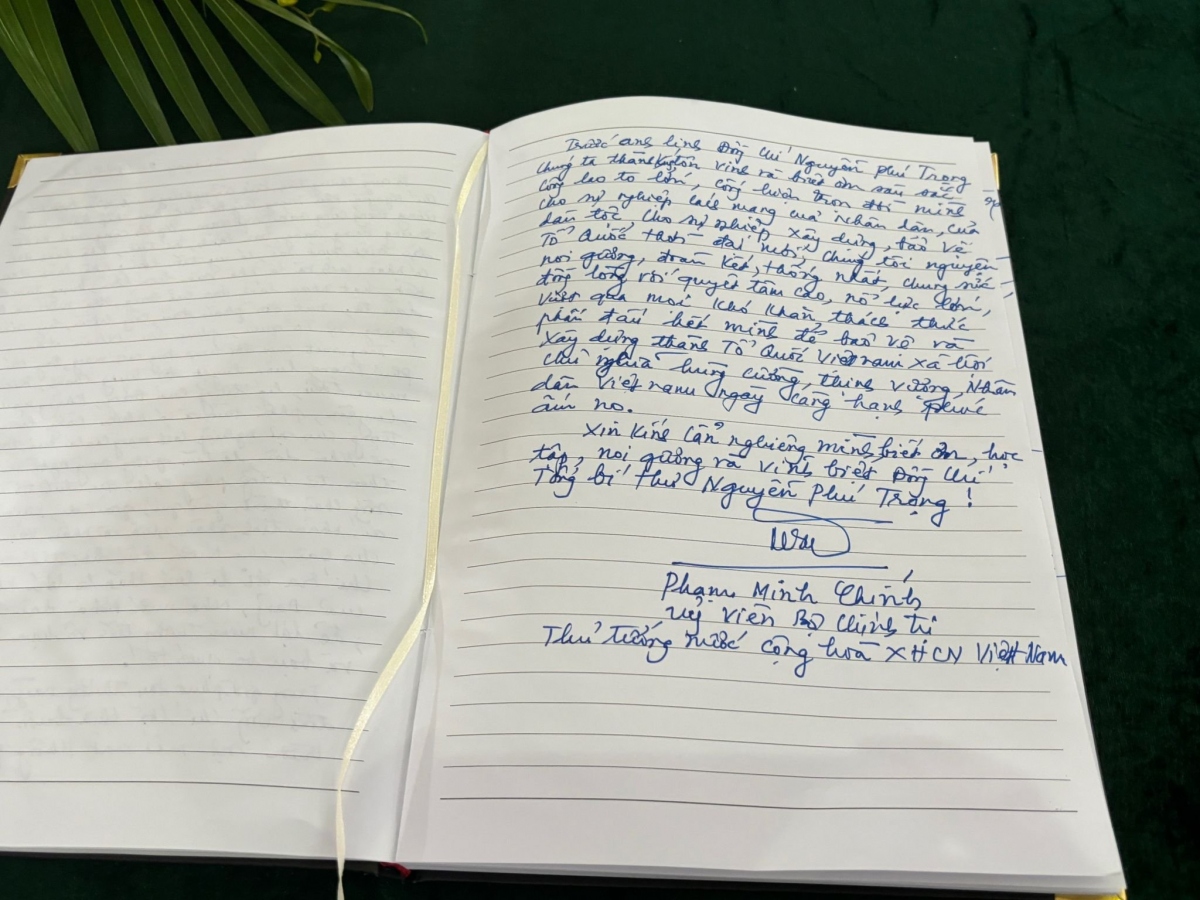 Trước anh linh Đồng chí Nguyễn Phú Trọng
chúng ta thành kính tôn vinh và biết ơn sâu sắc
công lao to lớn, cống hiến trọn đời mình
cho sự nghiệp cách mạng của nhân dân, của
dân tộc, cho sự nghiệp xây dựng, bảo vệ
Tổ Quốc thời đại mới, chúng tôi nguyện
noi gương, đoàn kết, thống nhất, chung sức
đồng lòng với quyết tâm cao, nỗ lực lớn,
vượt qua mọi khó khăn thách thức
phấn đấu hết mình để bảo vệ và
xây dựng thành Tổ Quốc Việt nam xã hội
chủ nghĩa hùng cường, thịnh vượng, Nhân
dân Việt nam ngày càng hạnh phúc
ấm no.
Xin kính cẩn nghiêng mình, biết ơn, học
tập, noi gương và vĩnh biệt Đồng chí
Tổng bí thư Nguyễn Phú Trọng !
Phạm Minh Chính
uỷ viên Bộ chính trị
Thủ tướng nước cộng hoà XHCN Việt Nam